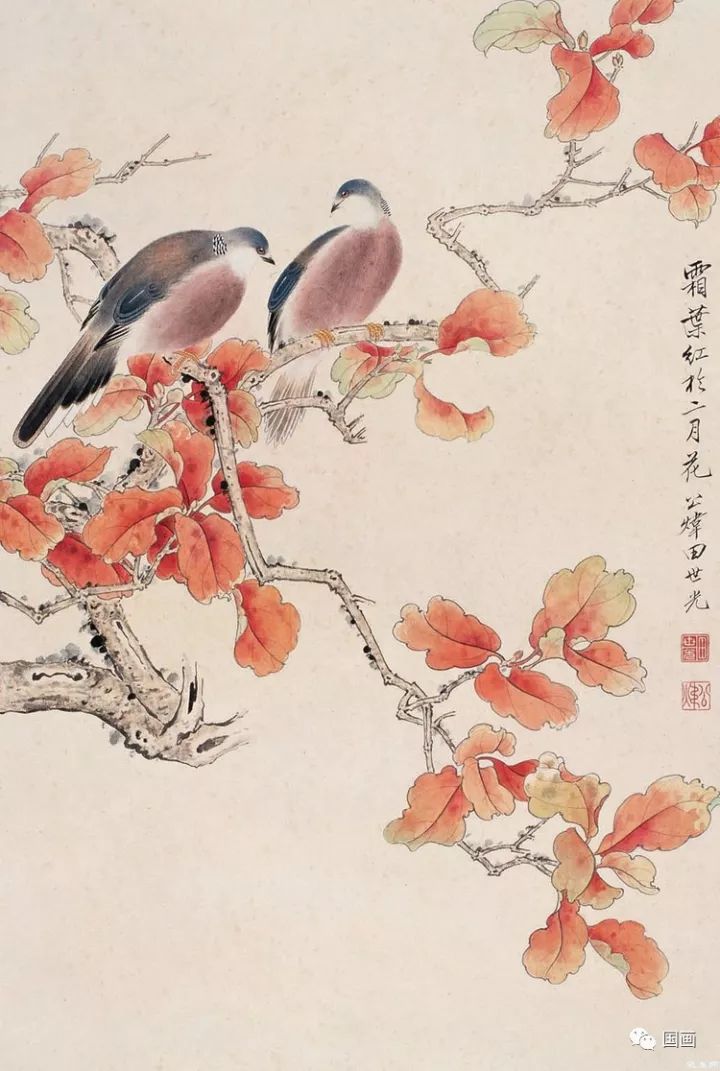 霜葉紅於二月花 公煒田世光
国画